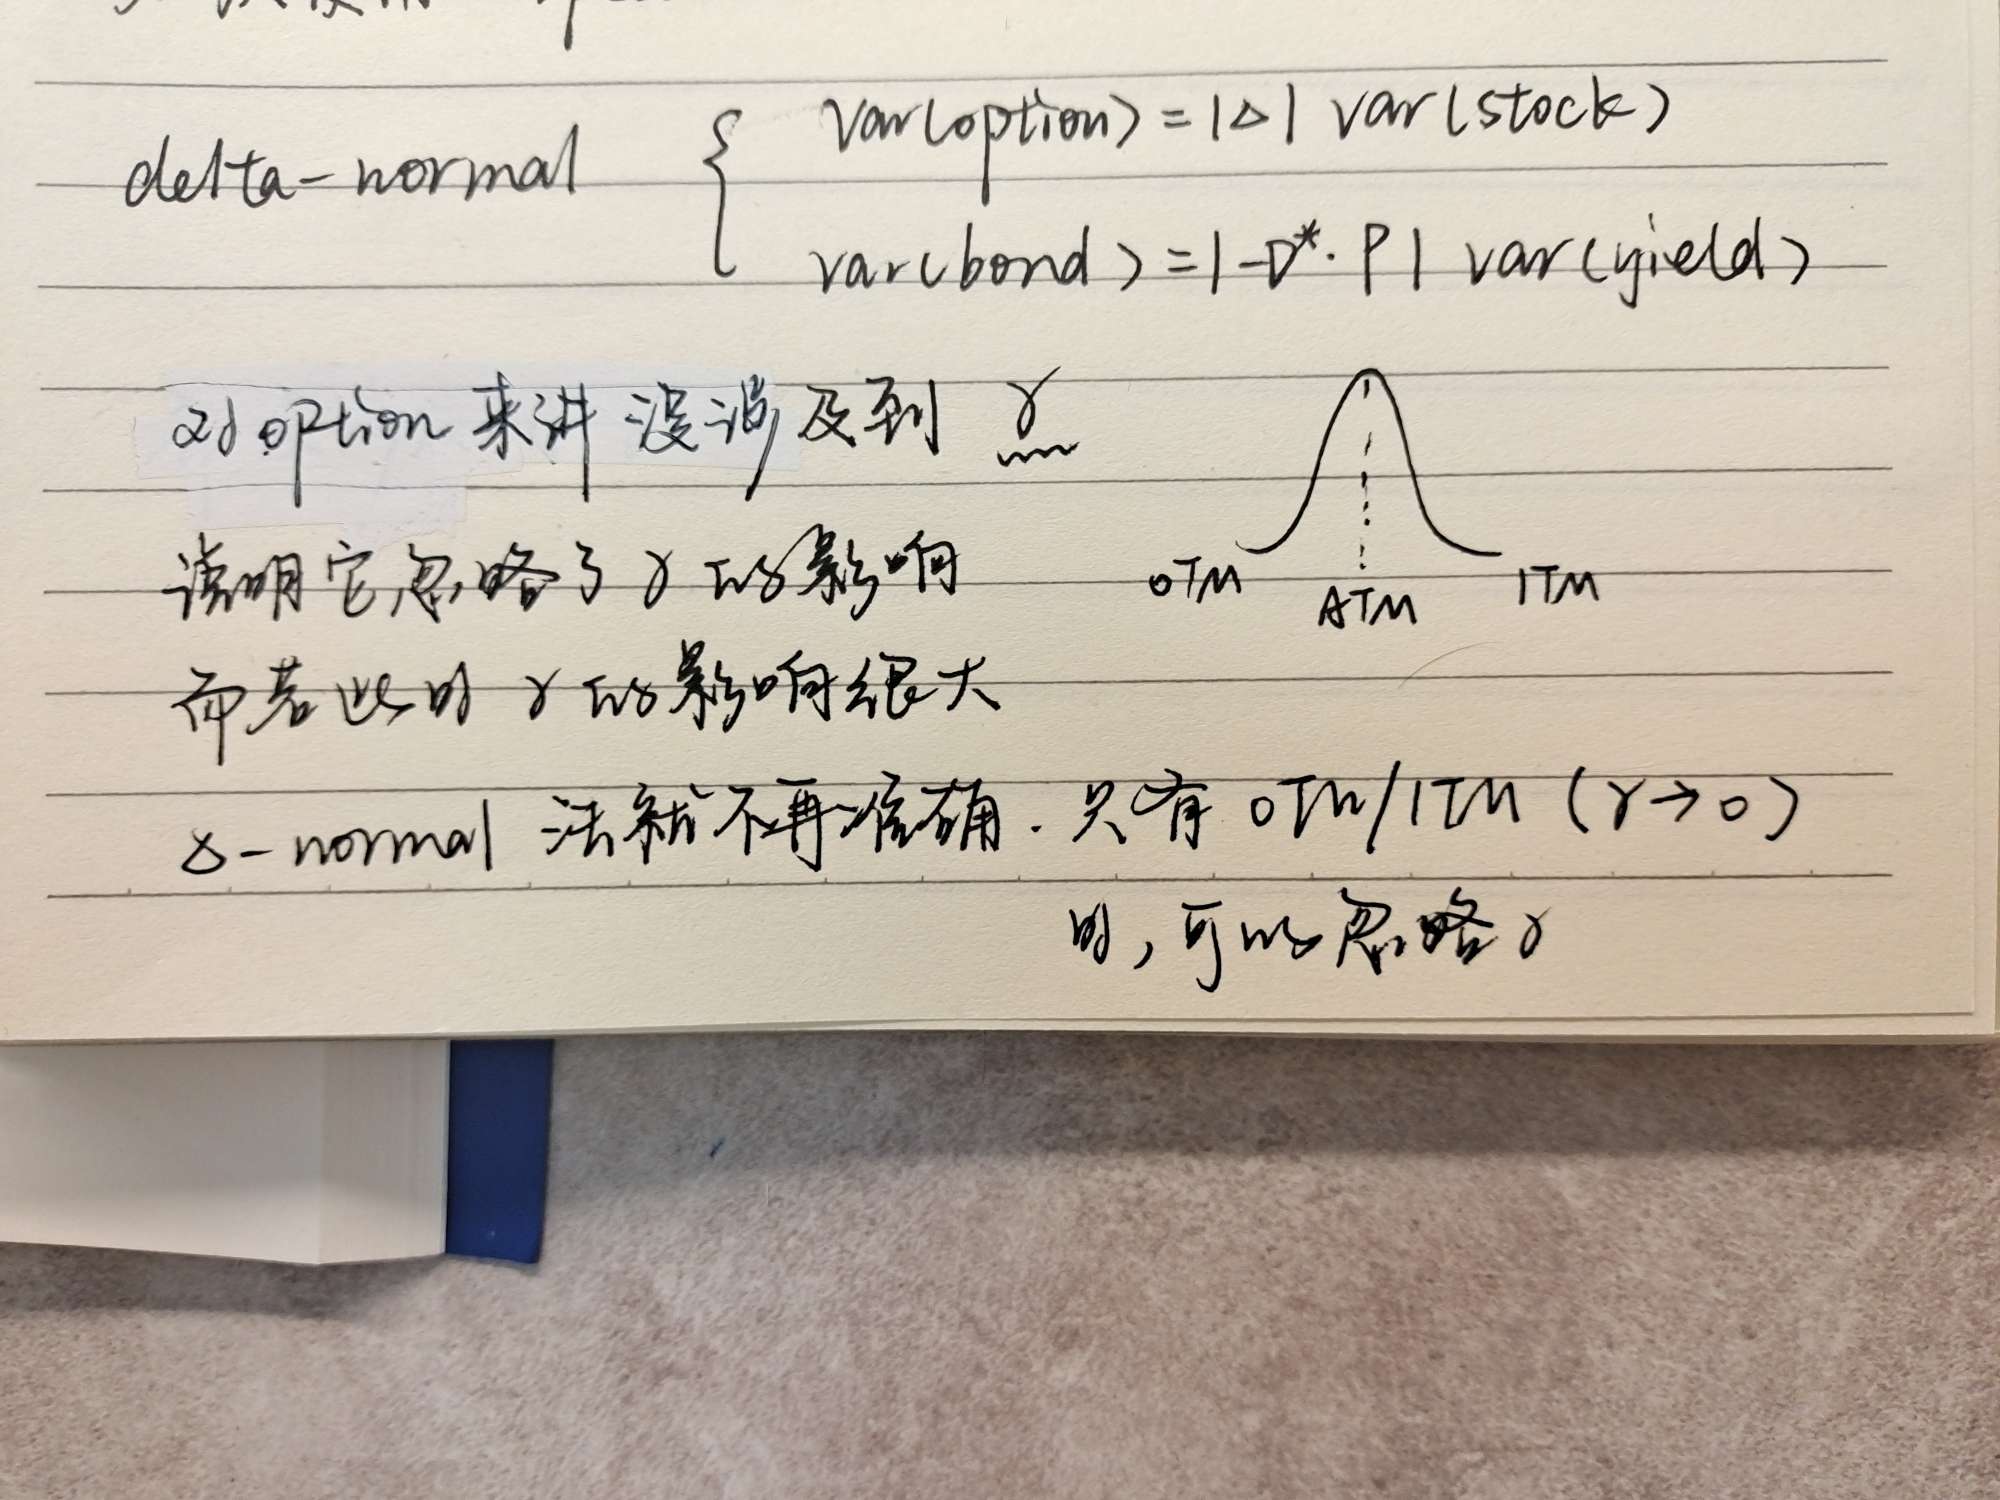 delta-normal { var(option) = |Δ| var(stock)
var(bond) = |-D*·P| var(yield)
对option来讲 没涉及到 γ
说明它忽略了 γ 的影响
OTM ATM ITM
而若此时 γ 的影响很大
Δ-normal 法就不再准确. 只有 OTM/ITM (γ→0)
时, 可以忽略 γ